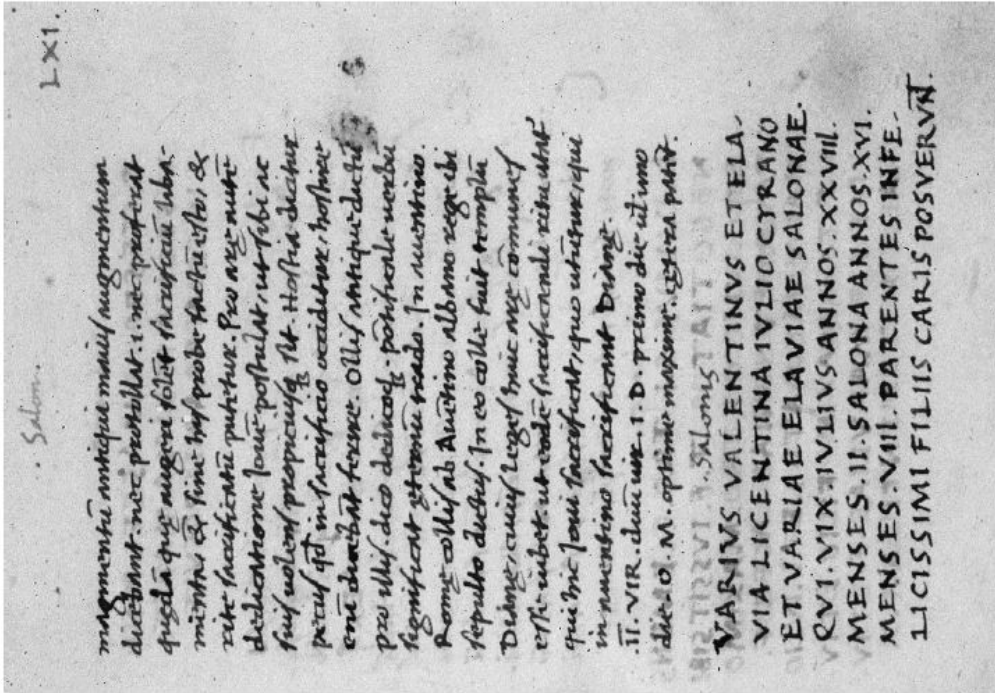 LXI.
Salon.
magmentū antiqui maius augmentum
dicebant. nec protollat. i. nec proferat
quædā quę augeri solēt sacrificiū libamina
rite sacrificantē putetur. Pro arę autē
dedicatione Jouē postulat, ut sibi ac
suis uolens propiciusq sit. Hostia dicitur
pecus qd in sacrificio occiditur, hostiae
enī dicebāt ferire. Ollis antiqui dictū
pro illis dico dedicoq. pōtificale uerbū
significat ęternū trado. In auentino.
Romę collis ab Auētino albano rege ibi
sepulto dictus. In eo colle fuit templū
Dianę, cuius leges huic arę cōmunes
esse iubet. ut eodē sacrificandi ritu utāt
qui hic Joui sacrificāt, quo utūtur, qui
in auentino sacrificant Dianę.
II. VIR. duū uir. I. D. primo die ultimo
die. I. O. M. optime maxime. cętera patēt.
Salonę
VARIVS VALENTINVS ET FLA-
VIA LICENTINA IVLIO CYRANO
ET VARIAE FLAVIAE SALONAE.
QVI. VIX. IVLIVS. ANNOS. XXVIII.
MENSES. II. SALONA ANNOS. XVI.
MENSES. VIII. PARENTES INFE-
LICISSIMI FILIIS CARIS POSVERVNT.